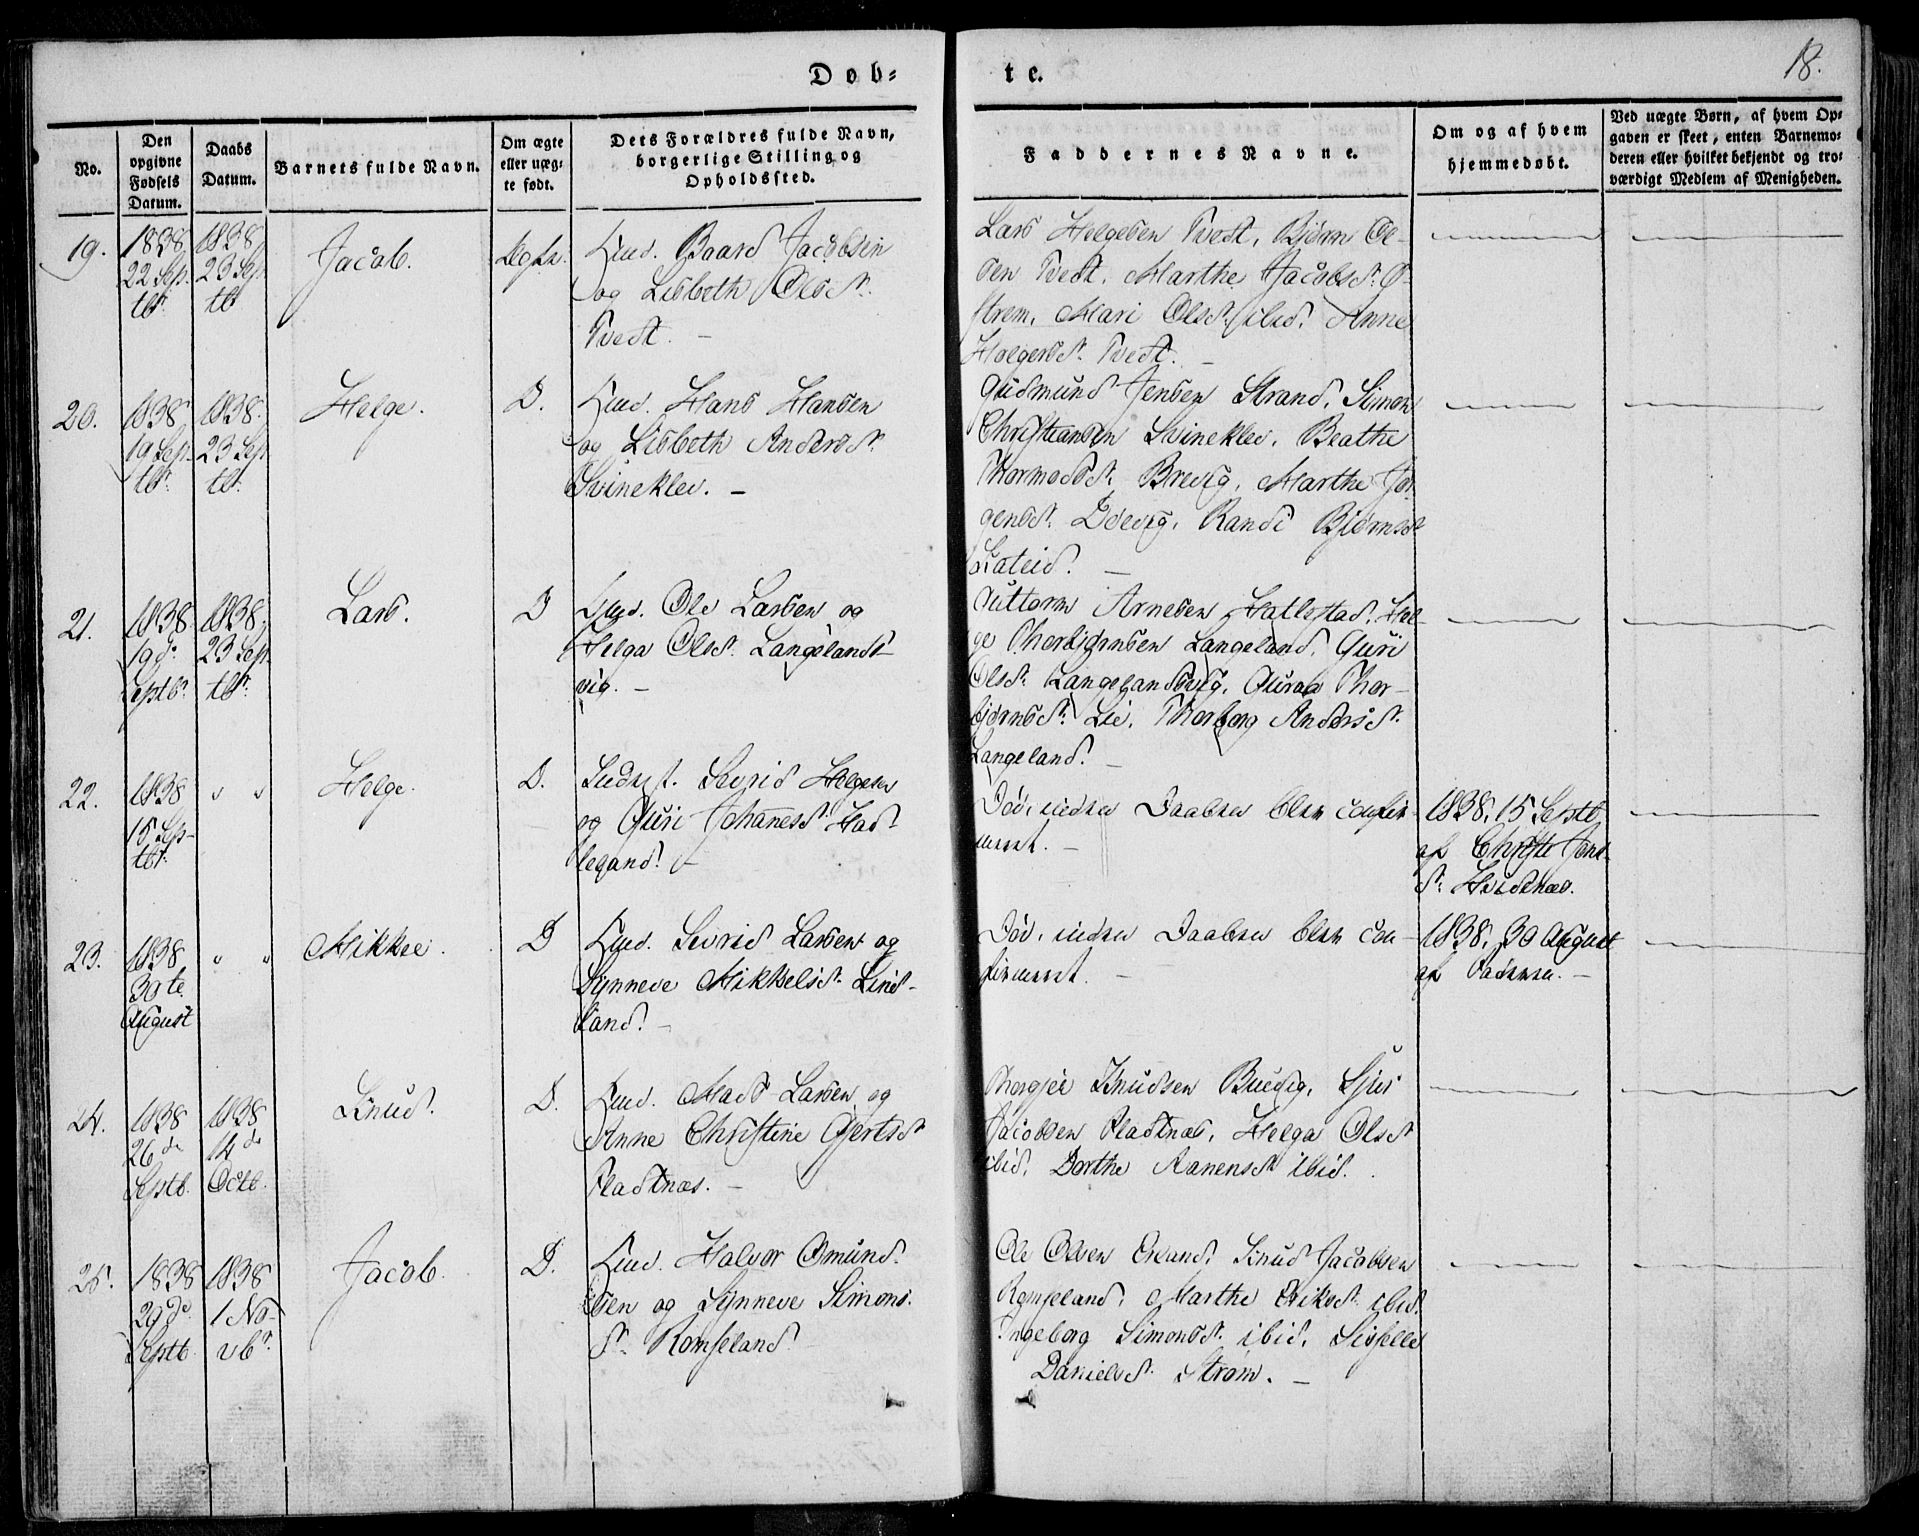 Døb-
te.
18.
No.
Den opgivne Fødsels Datum.
Daabs Datum.
Barnets fulde Navn.
Om ægte eller uæg-
te født.
Dets Forældres fulde Navn,
borgerlige Stilling og
Opholdssted.
Faddernes Navne.
Om og af hvem
hjemmedøbt.
Ved uægte Børn, af hvem Op-
gaven er skeet, enten Barnemo-
deren eller hvilket bekjendt og tro-
værdigt Medlem af Menigheden.
19.
1838
22 Sep-
tbr.
1838
23 Sep-
tb
Jacob.
Ægte.
Gmd. Baard Jacobsen
og Lisbeth Olsd.
Tvedt. -
Lars Helgesen Tvedt, Bjørn Ol-
sen Tvedt, Marthe Jacobsd. Ø-
strem, Mari Olsd. ibid. Anne
Helgesd. Tvedt. -
20.
1838
19 Sep-
tbr.
1838.
23 Sep
tb.
Helge.
D.
Gmd. Hans Hansen
og Lisbeth Andersd.
Svineklev. -
Gudmund Jensen Strand, Simon
Christiansen Svineklev, Beathe
Thormodsd. Brevig, Marthe Jør-
gensd. Odevig, Randi Bjørnsd.
Lateid. -
21.
1838
19 de
Septbr.
1838.
23 Sep-
tbr.
Lars.
D
Gmd. Ole Larsen og
Helga Olsd. Langelands-
vig. -
Guttorm Arnesen Hallestad, Hel-
ge Thorbjørnsen Langeland, Guri
Olsd. Langelandsvig, Guroa Thor-
bjørnsd. Lie, Thorborg Andersd.
Langeland. -
22.
1838
15 Sep-
tbr.
" "
Helge.
D.
Sevrid Helgesen
og Guri Johanesd. Had-
legand. -
Død, inden Daaben blev confir-
meret. -
1838, 15 Septb.
af Christi Jons-
d. Hvidenæs.
23.
1838
30 te
August
" "
Mikkel.
D
Gmd. Sevrid Larsen og
Synneve Mikkelsd. Lind-
land. -
Død, inden Daaben blev con-
firmeret. -
1838, 30 August
af Faderen. -
24.
1838
26 de
Septb.
1838
14 de
Octb.
Knud.
D.
Gmd. Mads Larsen og
Anne Christine Gjertsd.
Fladtnæs. -
Thorgjer Knudsen Buevig, Sjur
Jacobsen Fladtnæs, Helga Olsd.
ibid. Dorthe Aanensd. ibid.
25.
1838
29 de
Septb.
1838
1 No-
vbr.
Jacob.
D.
Gmd. Halvor Omund-
sen og Synneve Simons-
d. Romseland. -
Ole Olsen Eeland, Knud Jacobsen
Romseland, Marthe Eriksd. ibid.
Ingeborg Simonsd. ibid, Sisselle
Danielsd. Strøm. -